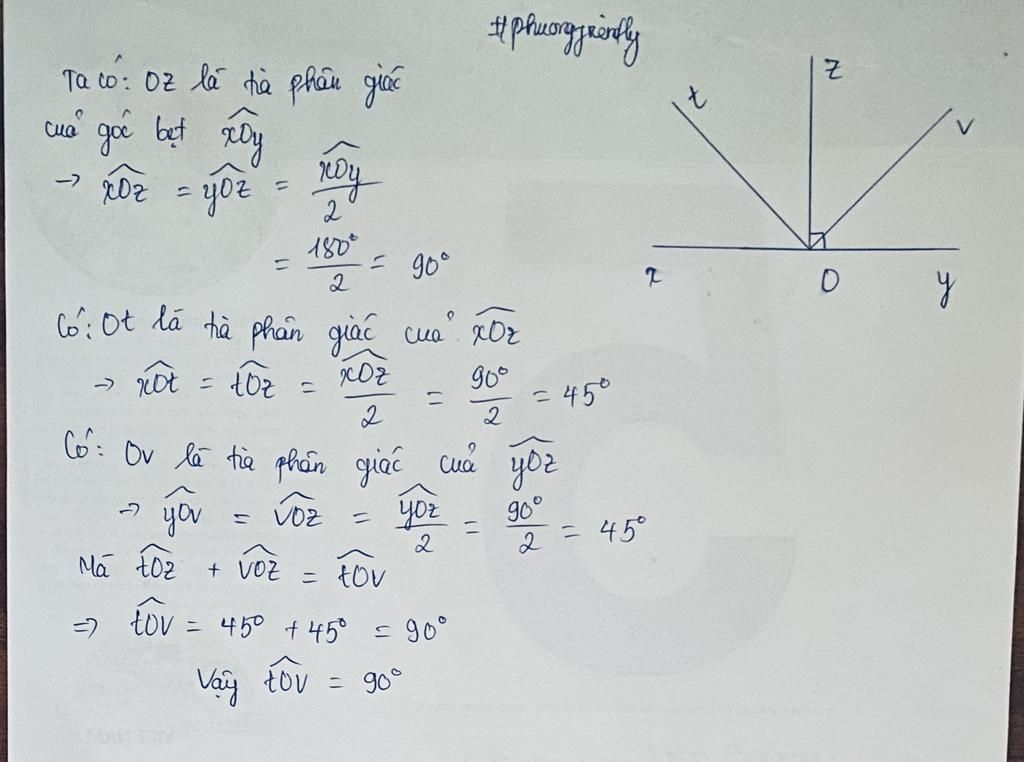 #phuongfrienfly
Ta có: Oz là tia phân giác
của góc bẹt \widehat{xOy}
→ \widehat{xOz} = \widehat{yOz} = \frac{\widehat{xOy}}{2}
= \frac{180°}{2} = 90°
Có: Ot là tia phân giác của \widehat{xOz}
→ \widehat{xOt} = \widehat{tOz} = \frac{\widehat{xOz}}{2} = \frac{90°}{2} = 45°
Có: Ov là tia phân giác của \widehat{yOz}
→ \widehat{yOv} = \widehat{vOz} = \frac{\widehat{yOz}}{2} = \frac{90°}{2} = 45°
Mà \widehat{tOz} + \widehat{vOz} = \widehat{tOv}
⇒ \widehat{tOv} = 45° + 45° = 90°
Vậy \widehat{tOv} = 90°
z
t
v
x O y